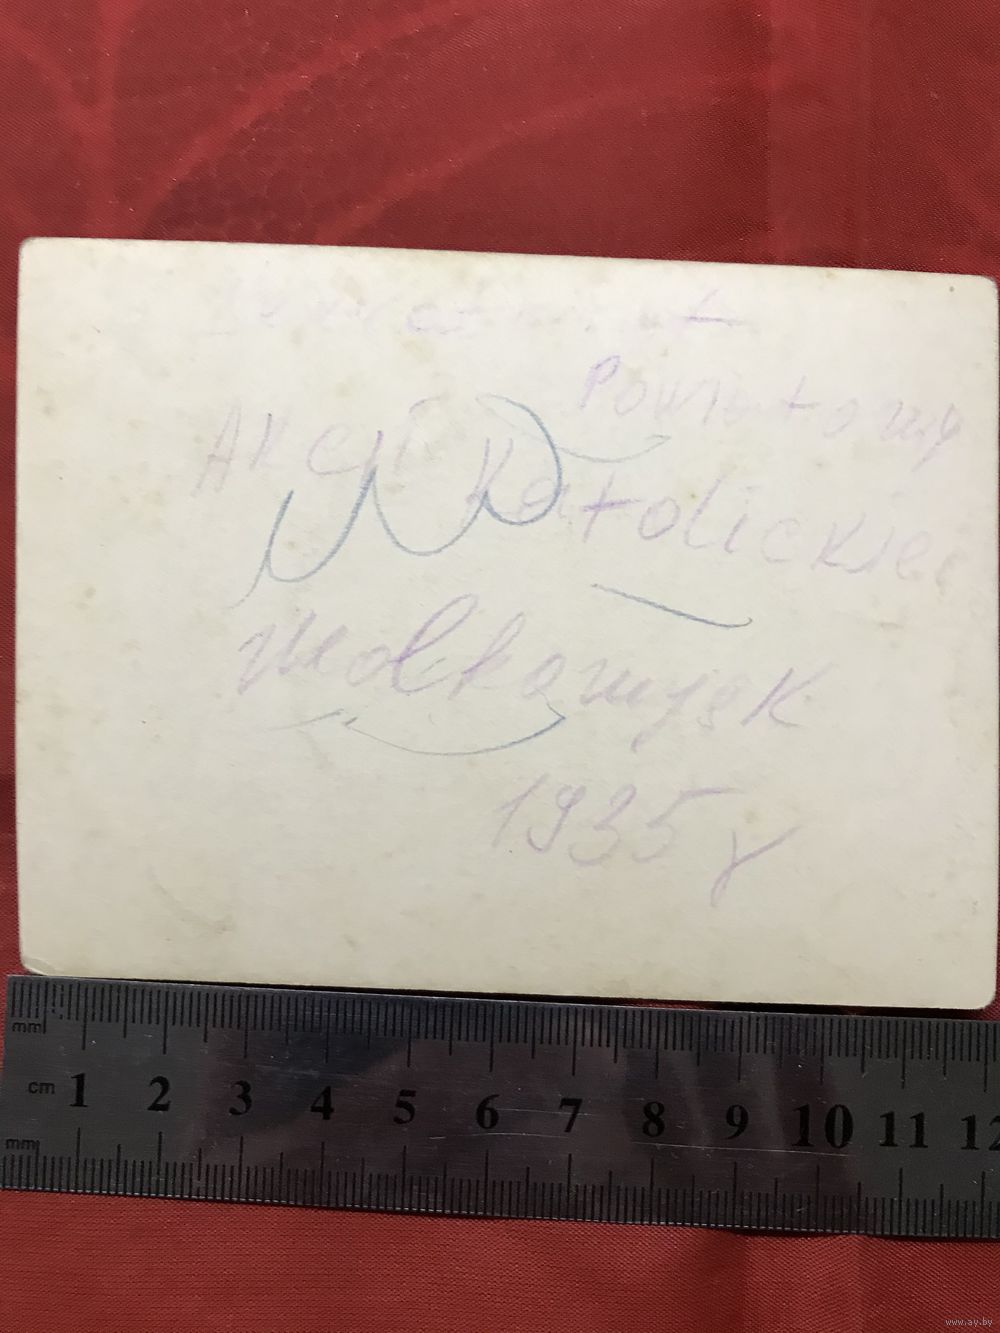 Powiatowy
Akcji Katolickiej
Wołkowysk
1935 r
mm
cm 1 2 3 4 5 6 7 8 9 10 11 12
mm
www.ay.by